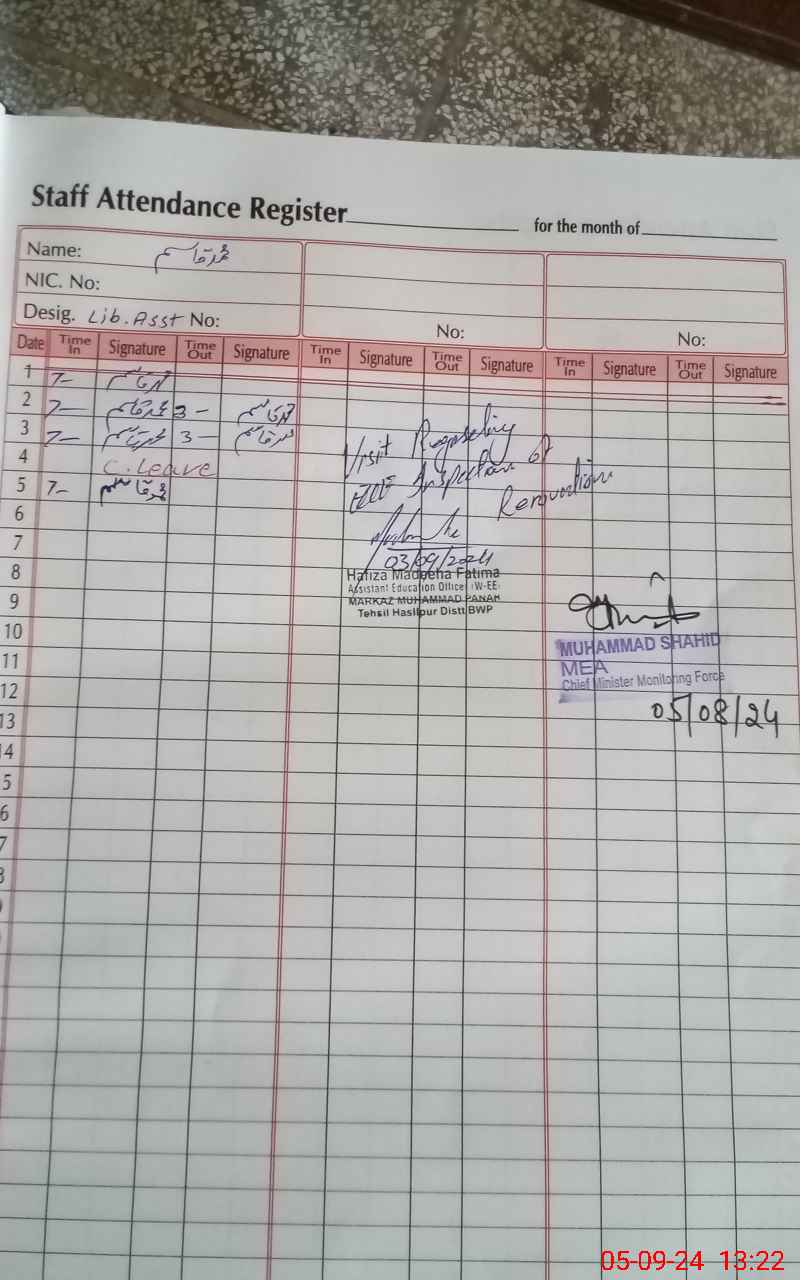 Staff Attendance Register for the month of
Name: محمد قاسم
NIC. No:
Desig. Lib. Asst No: No: No:
Date Time In Signature Time Out Signature Time In Signature Time Out Signature Time In Signature Time Out Signature
1 7- محمد قاسم
2 7- محمد قاسم 3- محمد قاسم
3 7- محمد قاسم 3- محمد قاسم
4 C. Leave
5 7- محمد قاسم
6
7
8
9
10
11
12
13
14
5
6
7
Visit Regarding
Inspection of
Renovation
03/09/2024
Hafiza Madeeha Fatima
Assistant Education Officer (W-EE)
MARKAZ MUHAMMAD PANAH
Tehsil Hasilpur Distt BWP
MUHAMMAD SHAHID
MEA
Chief Minister Monitoring Force
05/08/24
05-09-24 13:22